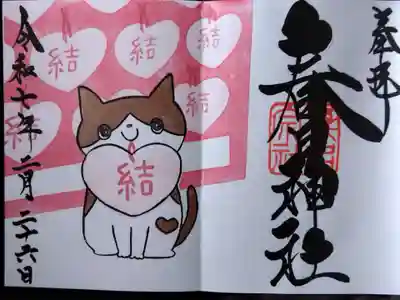 奉拝
春日神社
結
結
結
結
結
令和七年二月二十六日